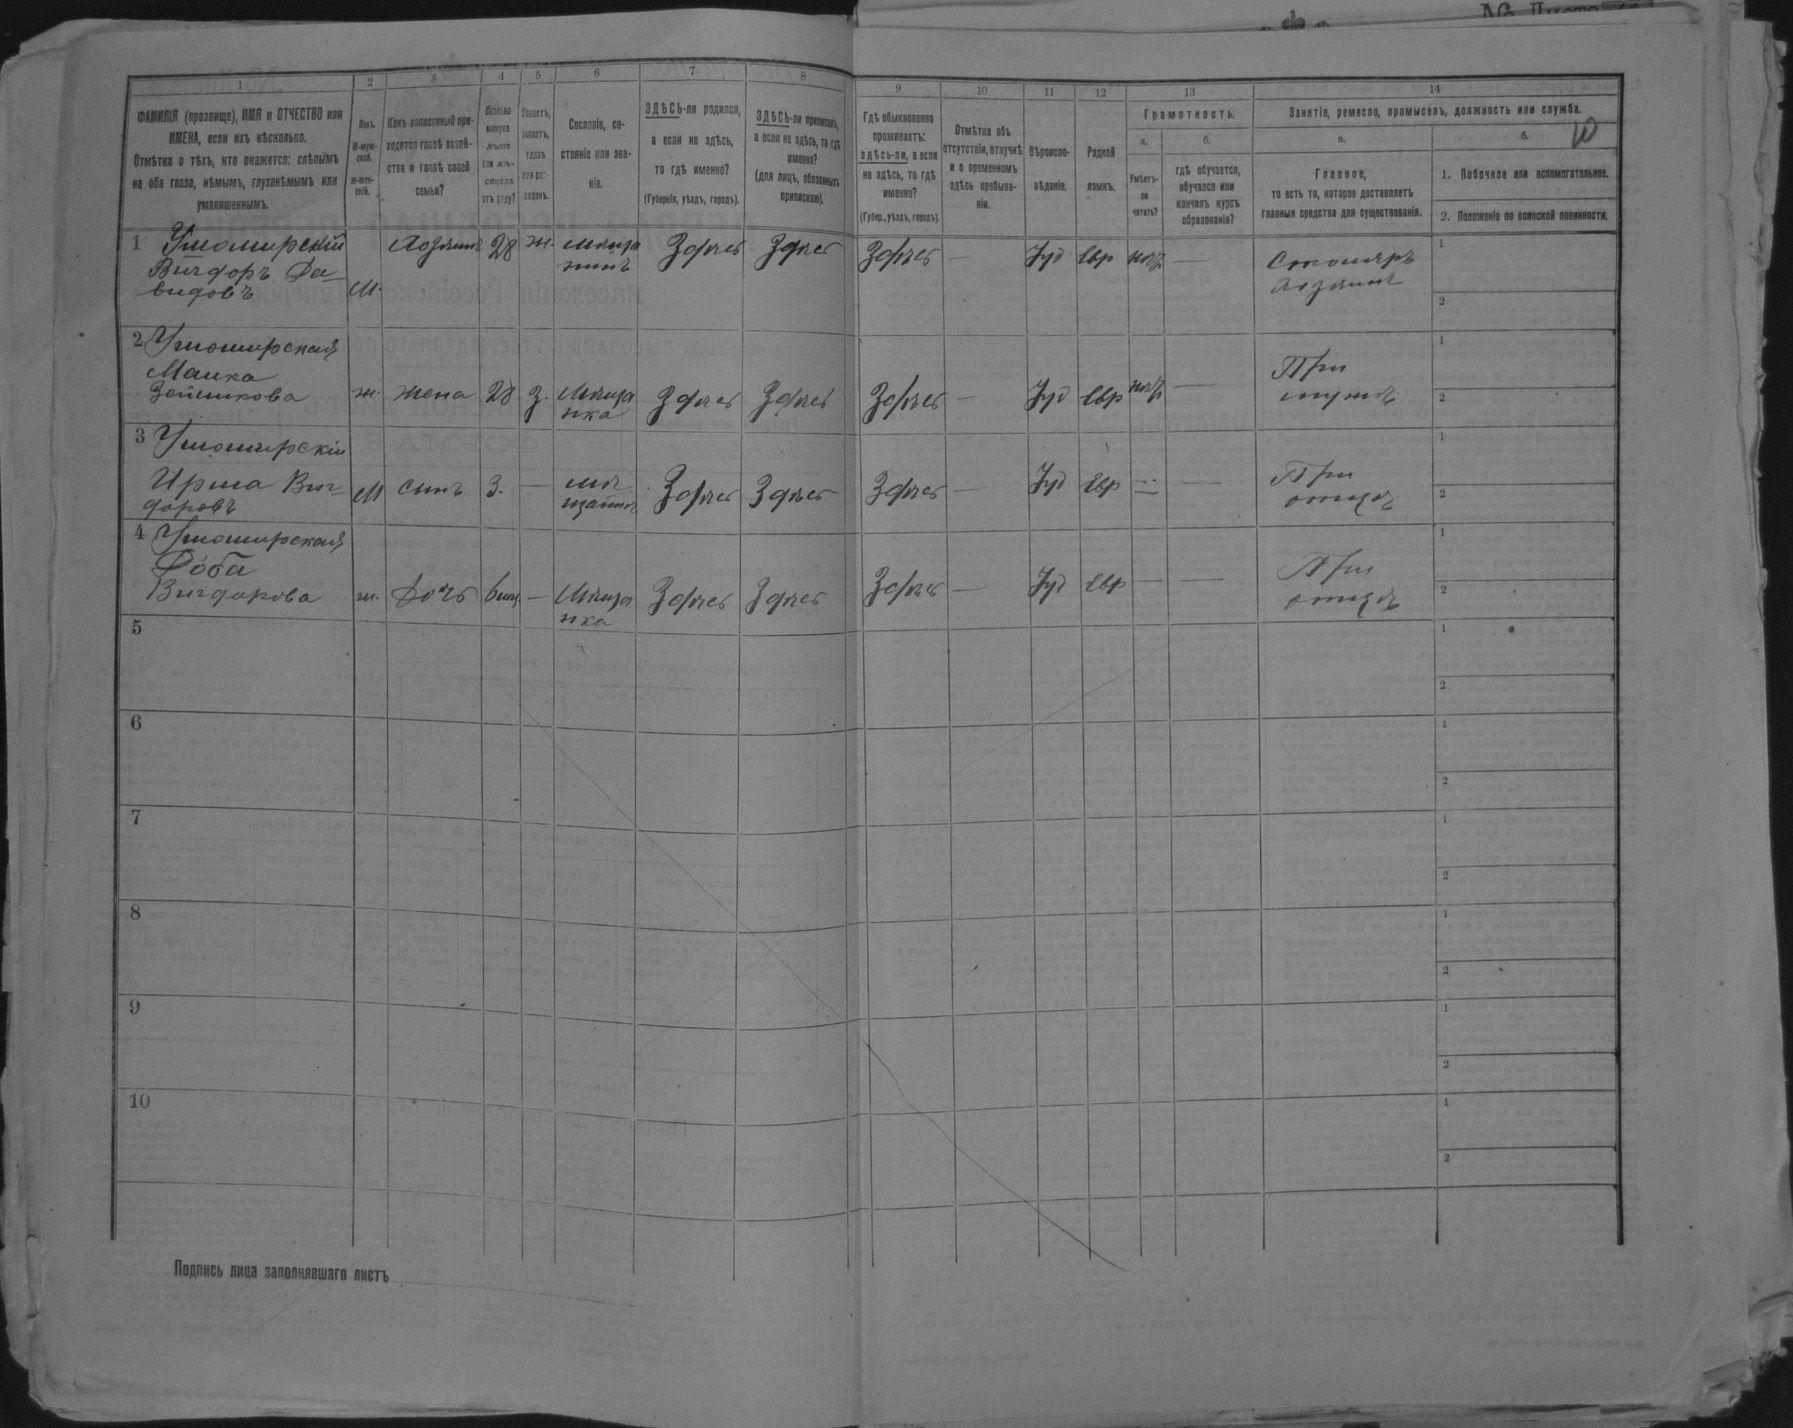 № Листа
1 2 3 4 5 6 7 8 9 10 11 12 13 14
ФАМИЛІЯ (прозвище), ИМЯ и ОТЧЕСТВО или
ИМЕНА, если ихъ нѣсколько.
Отмѣтка о тѣхъ, кто окажется: слѣпымъ
на оба глаза, нѣмымъ, глухонѣмымъ или
умалишеннымъ.
Полъ.
М-муж-
ской.
ж-жен-
скій.
Какъ записанный при-
ходится главѣ хозяй-
ства и главѣ своей
семьи?
Сколько
минуло
лѣтъ
или мѣ-
сяцевъ
отъ роду?
Холостъ,
женатъ,
вдовъ
или раз-
веденъ.
Сословіе, со-
стояніе или зва-
ніе.
ЗДѢСЬ-ли родился,
а если не здѣсь,
то гдѣ именно?
(Губернія, уѣздъ, городъ).
ЗДѢСЬ-ли приписанъ,
а если не здѣсь, то гдѣ
именно?
(для лицъ, обязанныхъ
припискою).
Гдѣ обыкновенно
проживаетъ:
здѣсь-ли, а если
не здѣсь, то гдѣ
именно?
(Губер., уѣздъ, городъ).
Отмѣтка объ
отсутствіи, отлучкѣ
и о временномъ
здѣсь пребыва-
ніи.
Вѣроиспо-
вѣданіе.
Родной
языкъ.
Грамотность.
а.
Умѣетъ-
ли
читать?
б.
гдѣ обучается,
обучался или
кончилъ курсъ
образованія?
Занятіе, ремесло, промыселъ, должность или служба.
а.
Главное,
то есть то, которое доставляетъ
главныя средства для существованія.
б.
10
1. Побочное или вспомогательное.
2. Положеніе по воинской повинности.
1 Ушомирскій
Вигдоръ Да-
видовъ
М. Хозяинъ 28 ж. мѣща
нинъ
Здѣсь Здѣсь Здѣсь — Іуд Евр —
Столяръ
хозяинъ
1
2
2 Ушомирская
Малка
Зейликова
ж. жена 28 з. Мѣща
нка
Здѣсь Здѣсь Здѣсь — Іуд Евр —
При
мужѣ
1
2
3 Ушомирскій
Ирша Виг-
доровъ
М сынъ 3. — мѣ
щанин
Здѣсь Здѣсь Здѣсь — Іуд Евр — —
При
отцѣ
1
2
4 Ушомирская
Доба
Вигдорова
ж. Дочь 6 мѣс. — Мѣща
нка
Здѣсь Здѣсь Здѣсь — Іуд Евр — —
При
отцѣ
1
2
5
1
2
6
1
2
7
1
2
8
1
2
9
1
2
10
1
2
Подпись лица заполнявшаго листъ